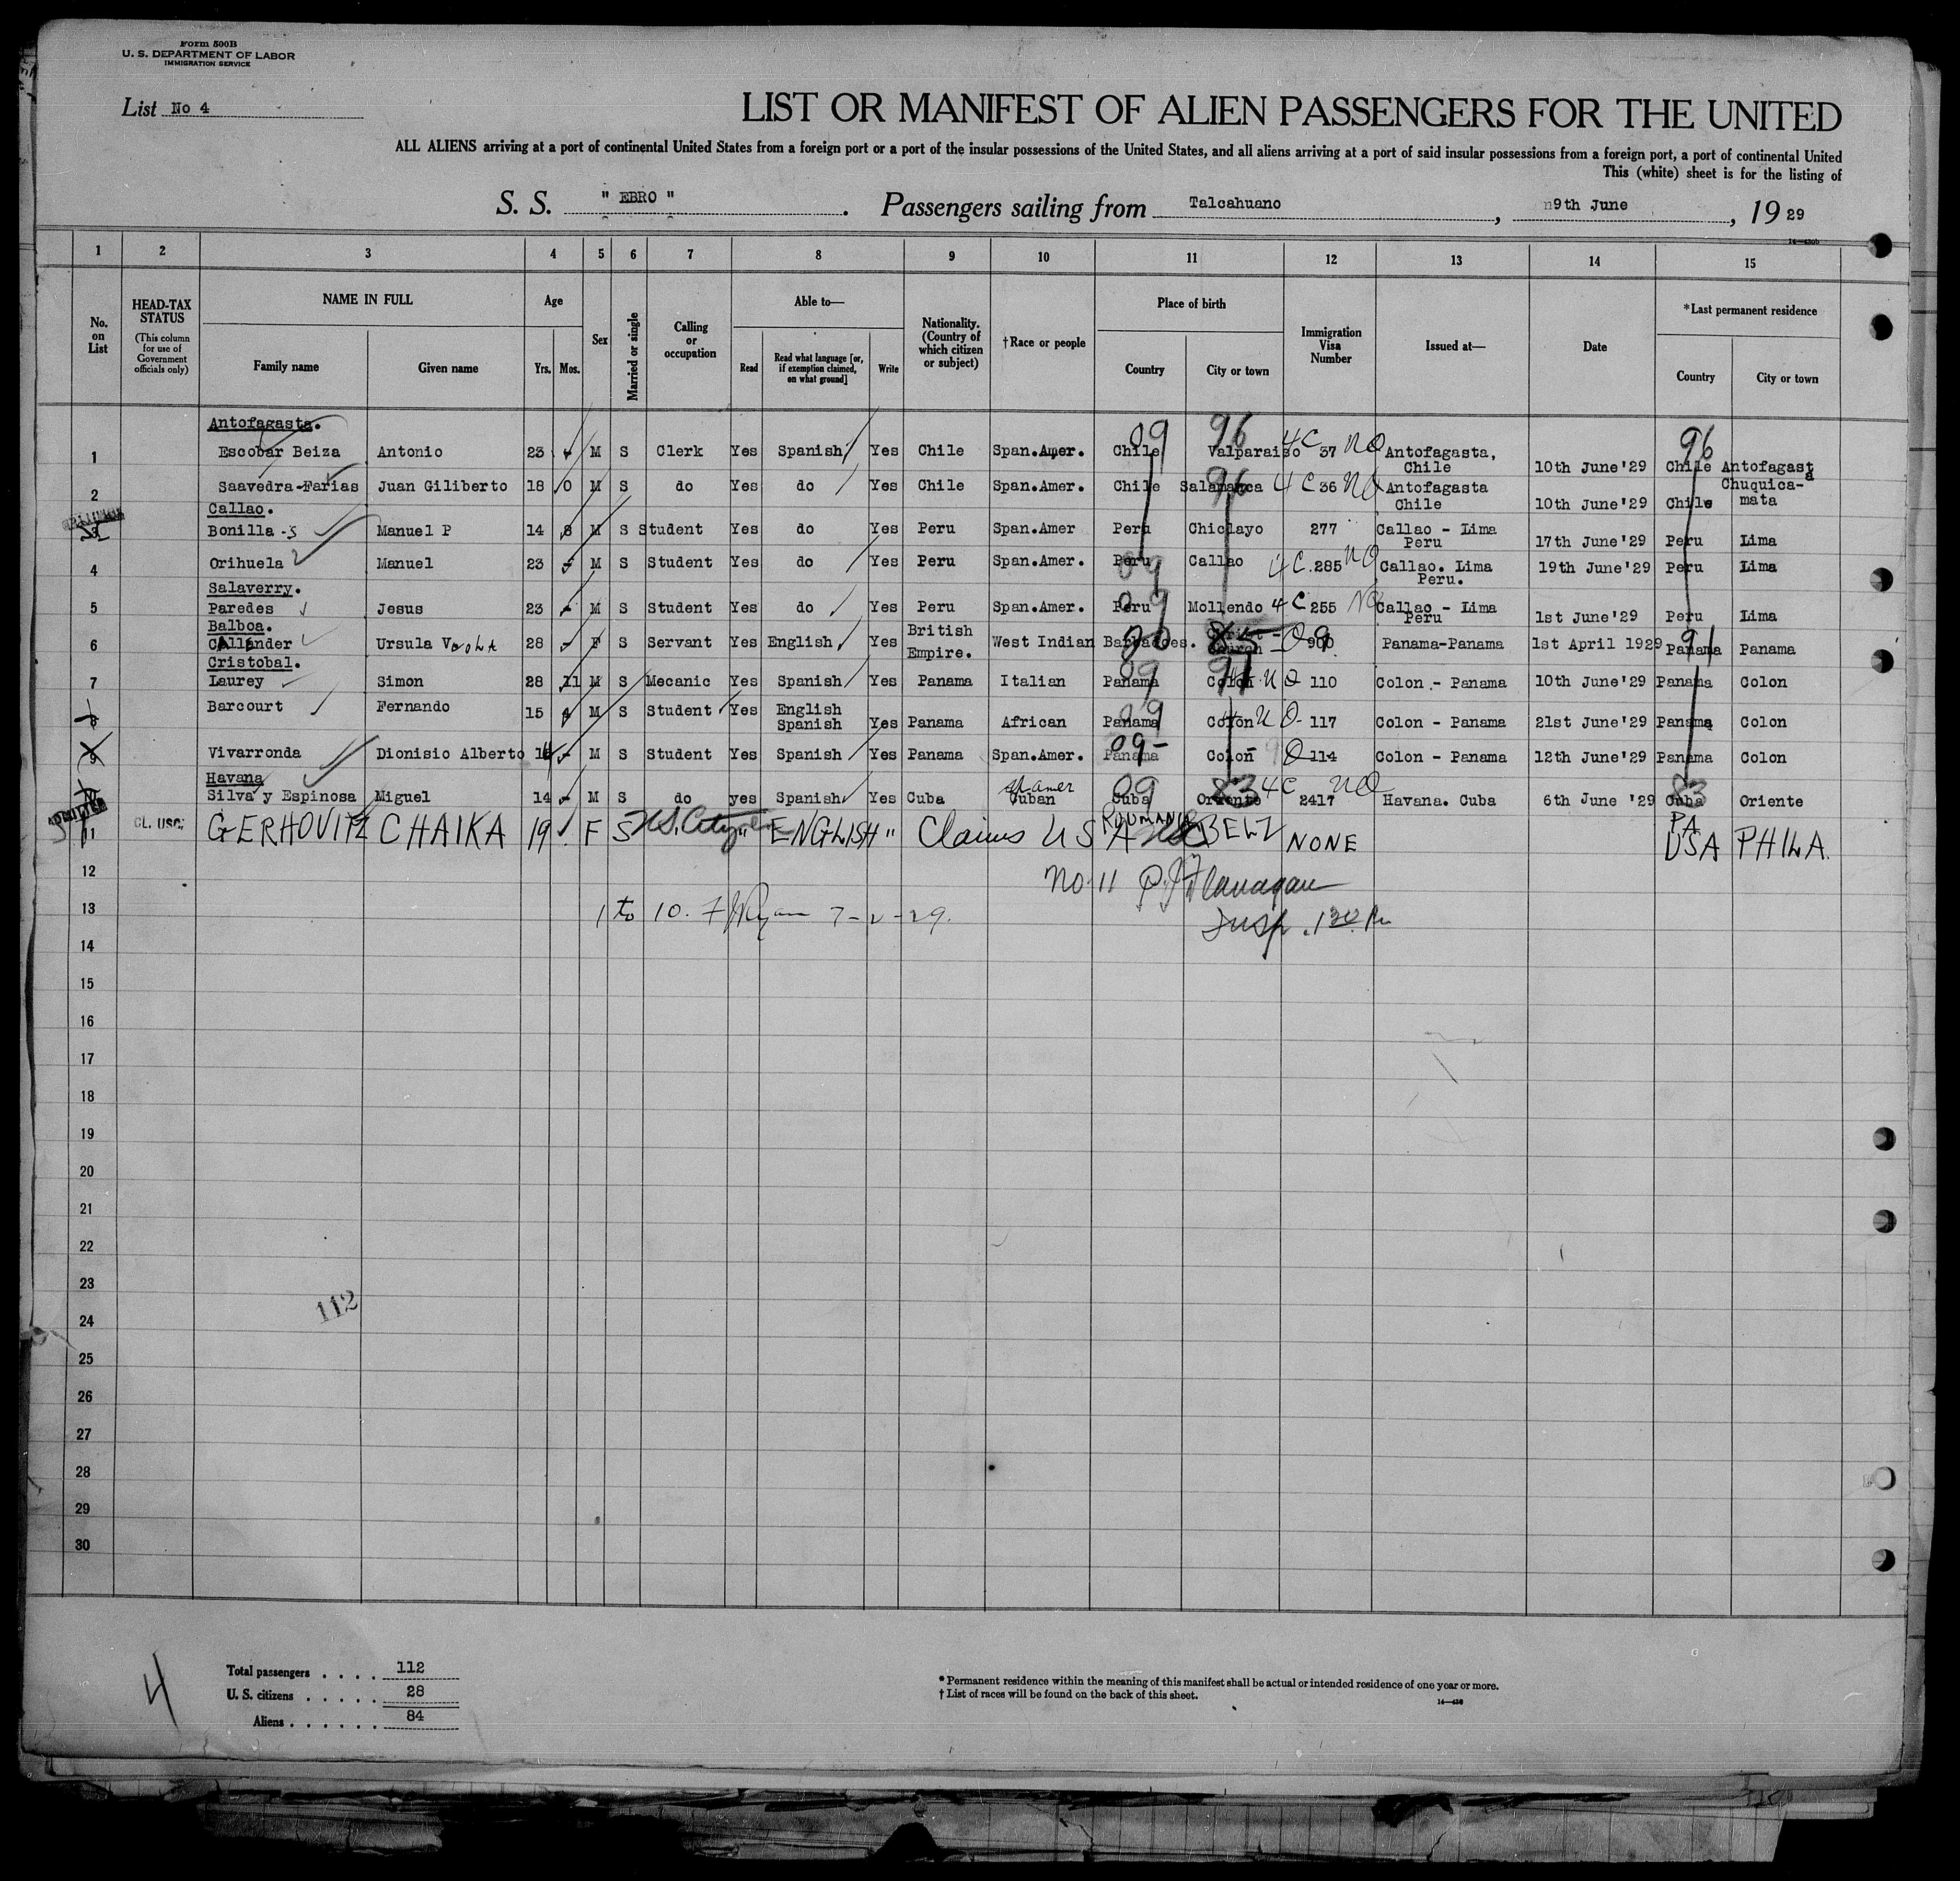 Form 500B
U. S. DEPARTMENT OF LABOR
IMMIGRATION SERVICE
List No 4
LIST OR MANIFEST OF ALIEN PASSENGERS FOR THE UNITED
ALL ALIENS arriving at a port of continental United States from a foreign port or a port of the insular possessions of the United States, and all aliens arriving at a port of said insular possessions from a foreign port, a port of continental United
This (white) sheet is for the listing of
S. S. " EBRO " . Passengers sailing from Talcahuano , 9th June , 19 29
1 2 3 4 5 6 7 8 9 10 11 12 13 14 15
No. on List
HEAD-TAX STATUS (This column for use of Government officials only)
NAME IN FULL Family name Given name
Age Yrs. Mos.
Sex
Married or single
Calling or occupation
Able to— Read Read what language [or, if exemption claimed, on what ground] Write
Nationality. (Country of which citizen or subject)
†Race or people
Place of birth Country City or town
Immigration Visa Number
Issued at—
Date
*Last permanent residence Country City or town
Antofagasta.
1 Escobar Beiza Antonio 23 - M S Clerk Yes Spanish Yes Chile Span.Amer. 09 Chile 96 Valparaiso 4C 37 NQ Antofagasta, Chile 10th June '29 96 Chile Antofagasta
2 Saavedra-Farias Juan Giliberto 18 0 M S do Yes do Yes Chile Span.Amer. Chile Salamanca 96 4C 36 NQ Antofagasta Chile 10th June '29 Chile Chuquica-mata
Callao.
3 Bonilla-S Manuel P 14 8 M S Student Yes do Yes Peru Span.Amer Peru Chiclayo 277 Callao - Lima Peru 17th June '29 Peru Lima
4 Orihuela Manuel 23 - M S Student Yes do Yes Peru Span.Amer. Peru 09 Callao 4C 285 NQ Callao. Lima Peru. 19th June '29 Peru Lima
Salaverry.
5 Paredes Jesus 23 - M S Student Yes do Yes Peru Span.Amer. Peru 09 Mollendo 4C 255 NQ Callao - Lima Peru 1st June '29 Peru Lima
Balboa.
6 Callender Ursula Viola 28 - F S Servant Yes English Yes British Empire. West Indian Barbadoes. Church 900 Panama-Panama 1st April 1929 Panama 91 Panama
Cristobal.
7 Laurey Simon 28 11 M S Mecanic Yes Spanish Yes Panama Italian Panama 09 Colon 91 110 Colon - Panama 10th June '29 Panama Colon
8 Barcourt Fernando 15 4 M S Student Yes English Spanish Yes Panama African Panama 09 Colon 117 Colon - Panama 21st June '29 Panama Colon
9 Vivarronda Dionisio Alberto 14 - M S Student Yes Spanish Yes Panama Span.Amer. 09- Panama Colon 114 Colon - Panama 12th June '29 Panama Colon
Havana
Silva y Espinosa Miguel 14 - M S do yes Spanish Yes Cuba Sp amer Cuban Cuba 09 Oriente 83 4C NQ 2417 Havana. Cuba 6th June '29 Cuba 83 Oriente
11 CL. USC; GERHOVITZ CHAIKA 19 F S U.S. Citizen " ENGLISH " Claims U S A ROUMANIA BELZ NONE PA USA PHILA.
12 No. 11 P.J. Flanagan
13 1 to 10. F J Ryan 7-2-29. Insp. 130 Pm
14
15
16
17
18
19
20
21
22
23
112
24
25
26
27
28
29
30
4
Total passengers . . . . 112
U. S. citizens . . . . . 28
Aliens . . . . . . 84
* Permanent residence within the meaning of this manifest shall be actual or intended residence of one year or more.
† List of races will be found on the back of this sheet.